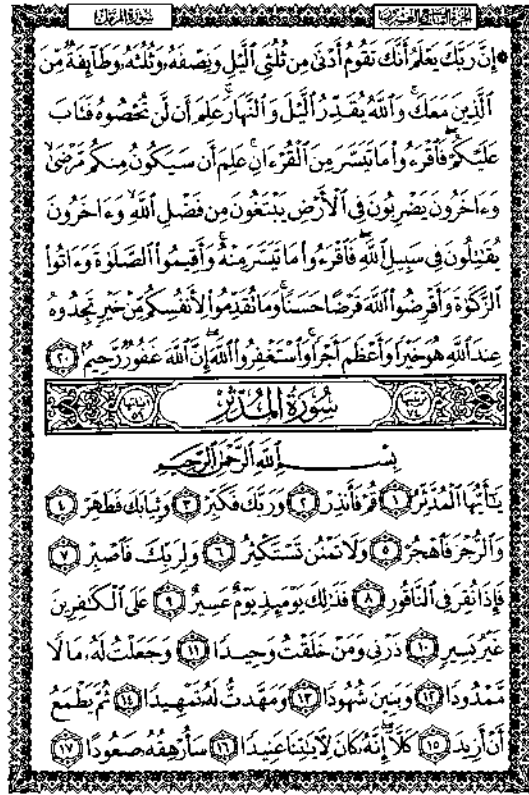 سورة المزمل
الجزء التاسع والعشرون
۞ إِنَّ رَبَّكَ يَعْلَمُ أَنَّكَ تَقُومُ أَدْنَىٰ مِن ثُلُثَيِ ٱلَّيْلِ وَنِصْفَهُۥ وَثُلُثَهُۥ وَطَآئِفَةٌ مِّنَ
ٱلَّذِينَ مَعَكَ ۚ وَٱللَّهُ يُقَدِّرُ ٱلَّيْلَ وَٱلنَّهَارَ ۚ عَلِمَ أَن لَّن تُحْصُوهُ فَتَابَ
عَلَيْكُمْ ۖ فَٱقْرَءُوا۟ مَا تَيَسَّرَ مِنَ ٱلْقُرْءَانِ ۚ عَلِمَ أَن سَيَكُونُ مِنكُم مَّرْضَىٰ ۙ
وَءَاخَرُونَ يَضْرِبُونَ فِى ٱلْأَرْضِ يَبْتَغُونَ مِن فَضْلِ ٱللَّهِ ۙ وَءَاخَرُونَ
يُقَـٰتِلُونَ فِى سَبِيلِ ٱللَّهِ ۖ فَٱقْرَءُوا۟ مَا تَيَسَّرَ مِنْهُ ۚ وَأَقِيمُوا۟ ٱلصَّلَوٰةَ وَءَاتُوا۟
ٱلزَّكَوٰةَ وَأَقْرِضُوا۟ ٱللَّهَ قَرْضًا حَسَنًا ۚ وَمَا تُقَدِّمُوا۟ لِأَنفُسِكُم مِّنْ خَيْرٍ تَجِدُوهُ
عِندَ ٱللَّهِ هُوَ خَيْرًا وَأَعْظَمَ أَجْرًا ۚ وَٱسْتَغْفِرُوا۟ ٱللَّهَ ۖ إِنَّ ٱللَّهَ غَفُورٌ رَّحِيمٌۢ ٢٠
ترتيبها ٧٤ سُورَةُ المُدَّثِّرِ آياتها ٥٦
بِسْمِ ٱللَّهِ ٱلرَّحْمَـٰنِ ٱلرَّحِيمِ
يَـٰٓأَيُّهَا ٱلْمُدَّثِّرُ ١ قُمْ فَأَنذِرْ ٢ وَرَبَّكَ فَكَبِّرْ ٣ وَثِيَابَكَ فَطَهِّرْ ٤
وَٱلرُّجْزَ فَٱهْجُرْ ٥ وَلَا تَمْنُن تَسْتَكْثِرُ ٦ وَلِرَبِّكَ فَٱصْبِرْ ٧
فَإِذَا نُقِرَ فِى ٱلنَّاقُورِ ٨ فَذَٰلِكَ يَوْمَئِذٍ يَوْمٌ عَسِيرٌ ٩ عَلَى ٱلْكَـٰفِرِينَ
غَيْرُ يَسِيرٍ ١٠ ذَرْنِى وَمَنْ خَلَقْتُ وَحِيدًا ١١ وَجَعَلْتُ لَهُۥ مَالًا
مَّمْدُودًا ١٢ وَبَنِينَ شُهُودًا ١٣ وَمَهَّدتُّ لَهُۥ تَمْهِيدًا ١٤ ثُمَّ يَطْمَعُ
أَنْ أَزِيدَ ١٥ كَلَّآ ۖ إِنَّهُۥ كَانَ لِـَٔايَـٰتِنَا عَنِيدًا ١٦ سَأُرْهِقُهُۥ صَعُودًا ١٧